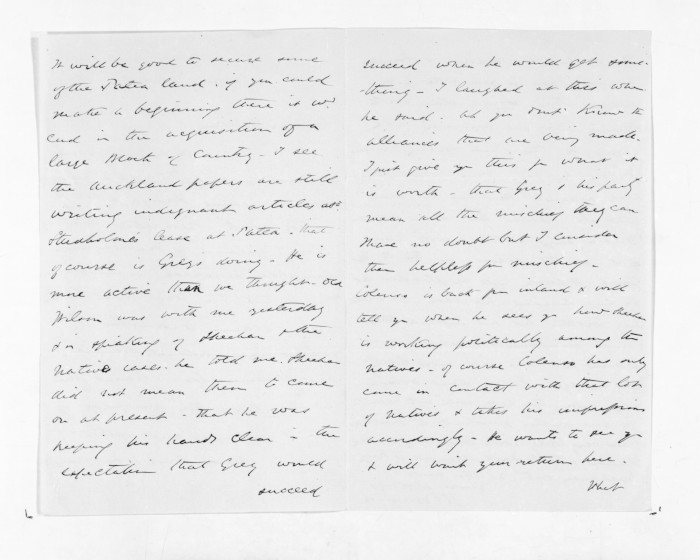 It will be good to secure some
of the Patea land. if you could
make a beginning there it wd
end in the acquisition of a
large Block of Country - I see
the Auckland papers are still
writing indignant articles abt
Studholme's lease at Patea. that
of course is Grey's doing - He is
more active than we thought - Old
Wilson was with me yesterday
& on speaking of Sheehan & the
Native cases. he told me. Sheehan
did not mean them to come
on at present - that he was
keeping his hands clear in the
expectation that Grey would
succeed
succeed when he would get some-
-thing - I laughed at this when
he said. Ah you dont Know the
alliances that are being made.
I just give you this for what it
is worth - that Grey & his party
mean all the mischief they can
I have no doubt but I consider
them helpless for mischief -
Colenso is back from inland & will
tell you when he sees you how Sheehan
is working politically among the
Natives - of course Colenso has only
come in contact with that lot
of Natives & takes his impressions
accordingly - He wants to see you
& will wait your return here.